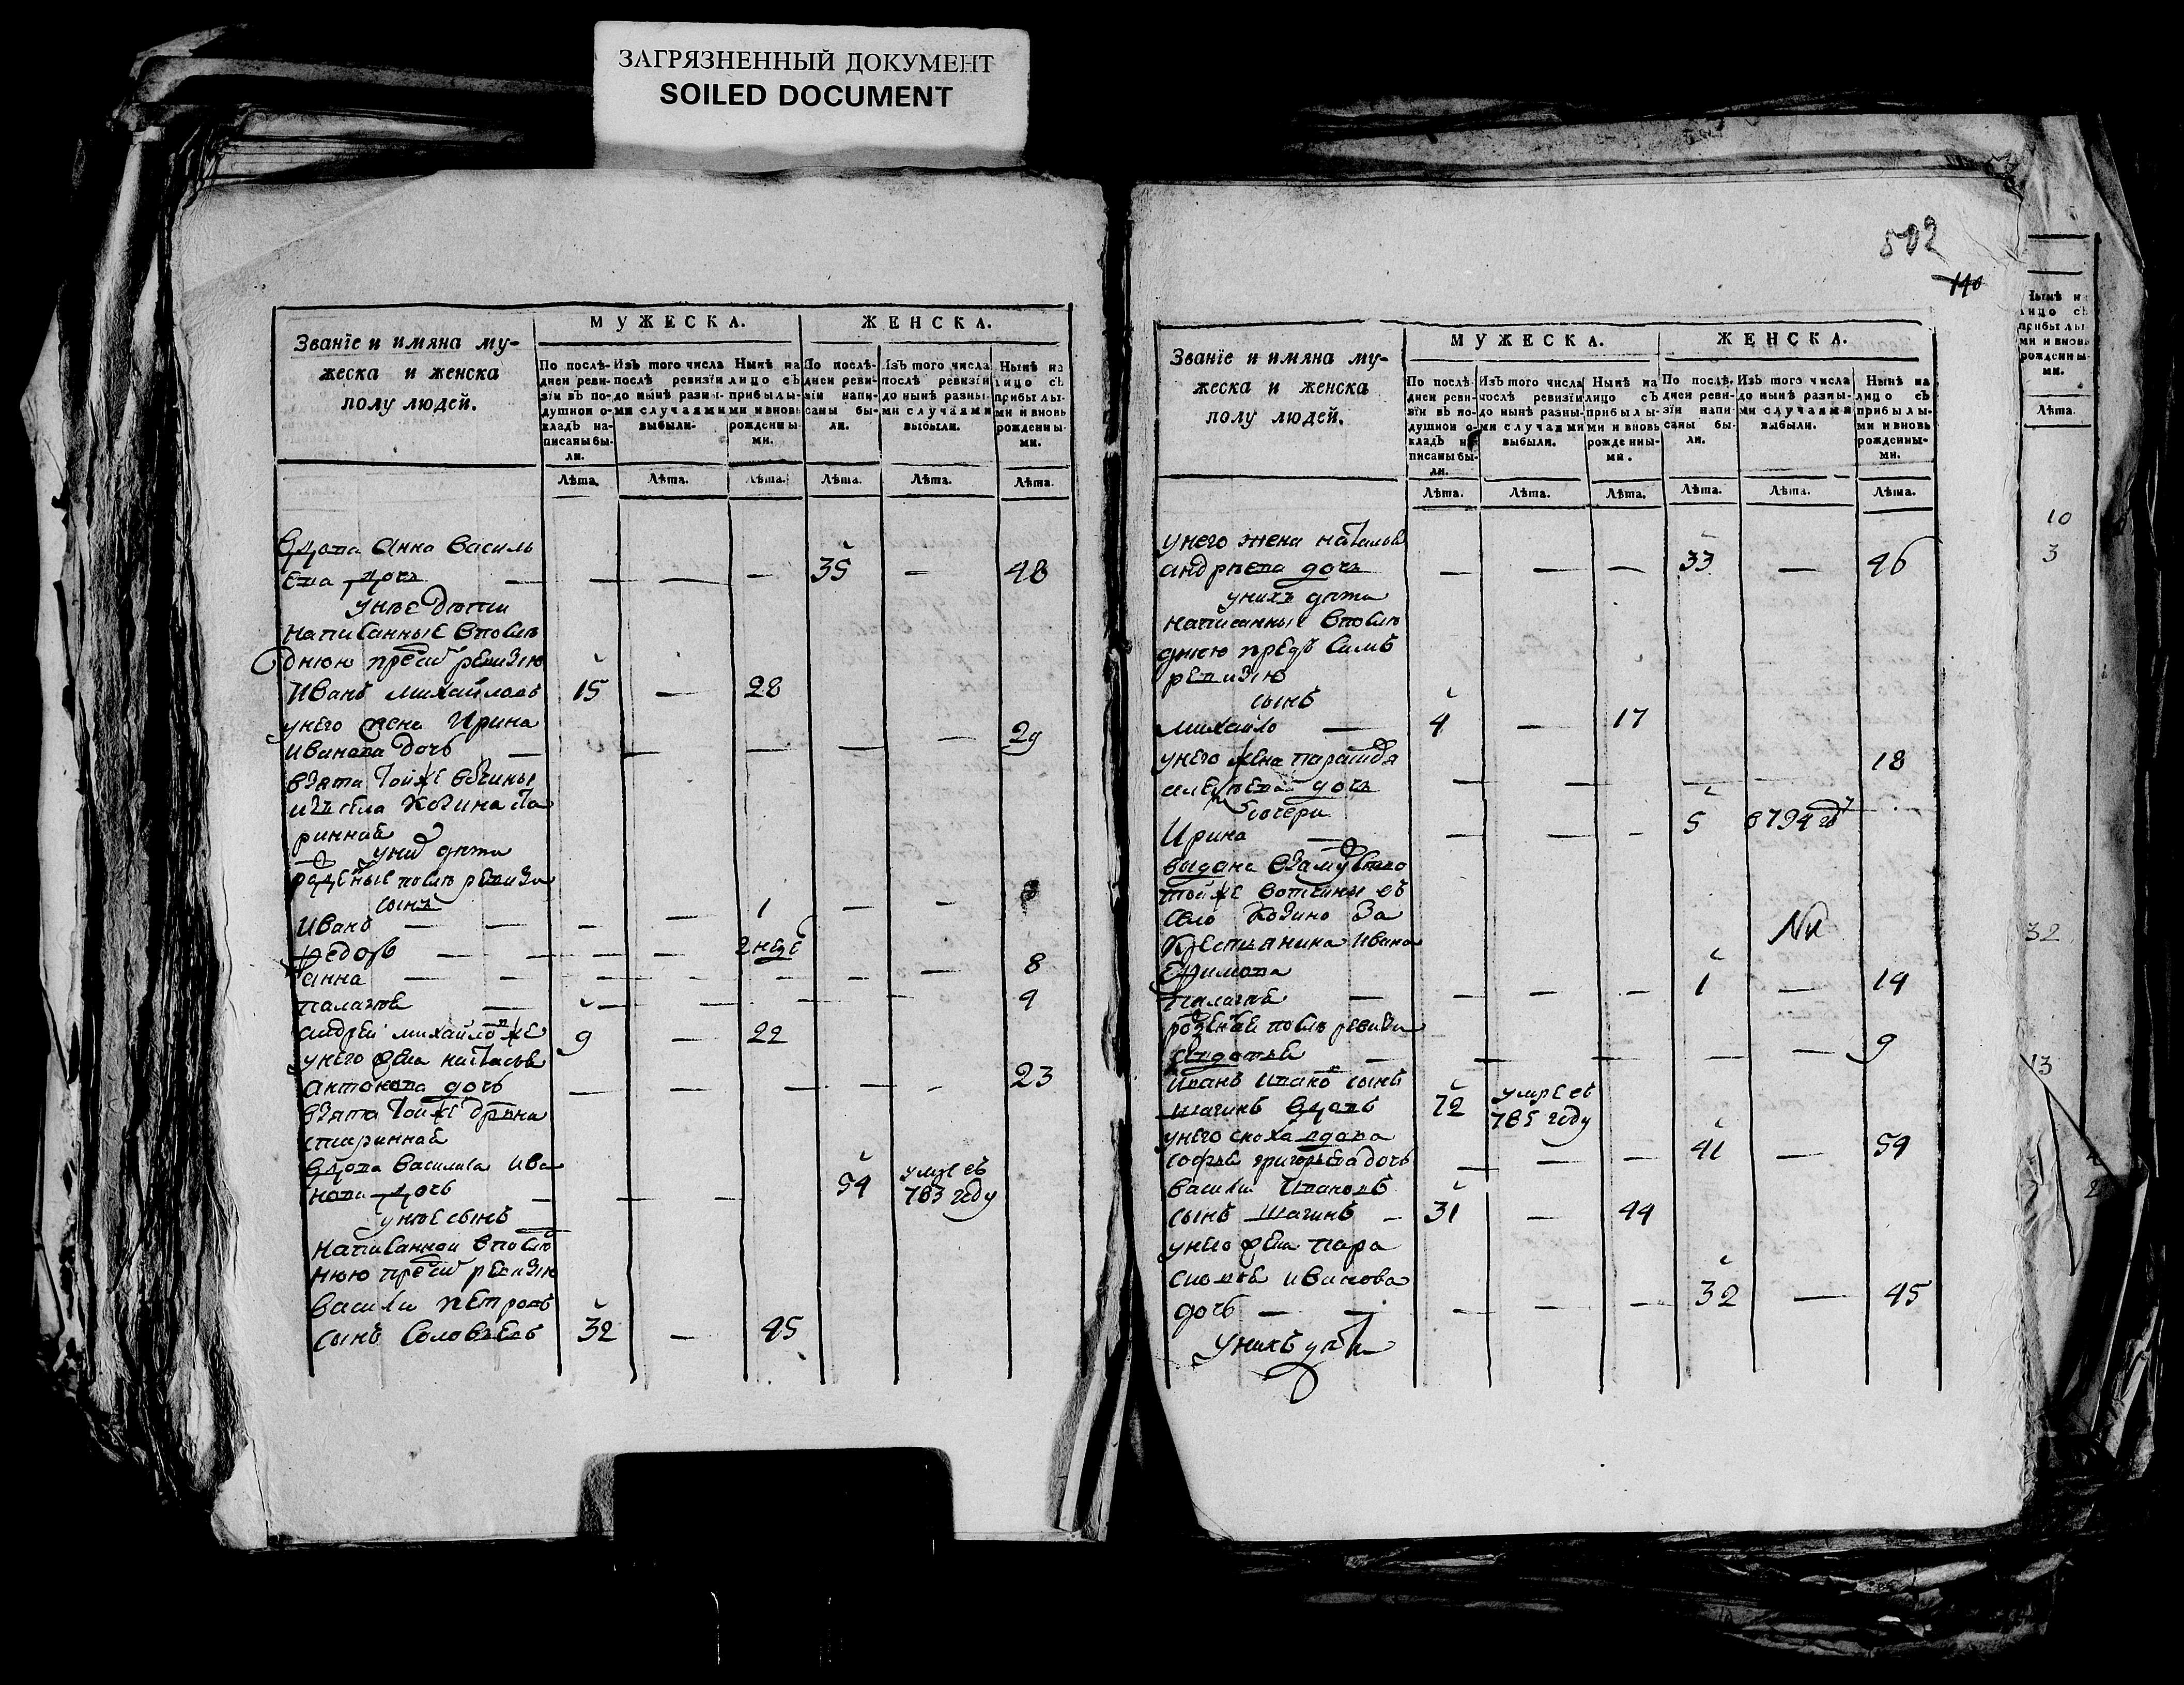 ЗАГРЯЗНЕННЫЙ ДОКУМЕНТ
SOILED DOCUMENT
Званїе и имяна му-
жеска и женска
полу людей.
МУЖЕСКА.
ЖЕНСКА.
По послѣ-
дней реви-
зїи въ по-
душной о-
кладъ на-
писаны бы-
ли.
Изъ того числа
послѣ ревизїи
до нынѣ разны-
ми случаями
выбыли.
Нынѣ на
лицо съ
прибылы-
ми и вновь
рожденны-
ми.
По послѣ-
дней реви-
зїи напи-
саны бы-
ли.
Изъ того числа
послѣ ревизїи
до нынѣ разны-
ми случаями
выбыли.
Нынѣ на
лицо съ
прибылы-
ми и вновь
рожденны-
ми.
Лѣта. Лѣта. Лѣта. Лѣта. Лѣта. Лѣта.
вдова Анна василь
ева дочь — — — — 35 — 48
унее дѣти
написанные впослѣ
днюю пред сим ревизию
Иванъ михайловъ 15 — 28
унего жена Ирина
Иванова дочь — — — — — 29
взята тойже вотчины
изъ села Козина ста
ринная
уних дѣти
рожденые послѣ ревизи
сынъ
Иванъ — — — — 1 — —
Федоръ — — — — 2 неде
анна — — — — — — — 8
палагея — — — — 4
андрей михайловже 9 — 22
унего жена настасья
антонова дочь — — — — — 23
взята тойже дрвна
старинная
вдова василиса Ива
нова дочь — — — 54 умре въ
783 году
унее сынъ
написанной впослѣ
нюю пред сим ревизию
васили петровъ
сынъ Соловьевъ 32 — 45
502
140
Званїе и имяна му-
жеска и женска
полу людей.
МУЖЕСКА.
ЖЕНСКА.
По послѣ-
дней реви-
зїи въ по-
душной о-
кладъ на-
писаны бы-
ли.
Изъ того числа
послѣ ревизїи
до нынѣ разны-
ми случаями
выбыли.
Нынѣ на
лицо съ
прибылы-
ми и вновь
рожденны-
ми.
По послѣ-
дней реви-
зїи напи-
саны бы-
ли.
Изъ того числа
послѣ ревизїи
до нынѣ разны-
ми случаями
выбыли.
Нынѣ на
лицо съ
прибылы-
ми и вновь
рожденны-
ми.
Лѣта. Лѣта. Лѣта. Лѣта. Лѣта. Лѣта.
унего жена наталья
андрѣева дочь — — — 33 — 46
унихъ дѣти
написанные впослѣ
днюю предъ симъ
ревизию
сынъ
михайло — 4 — 17
унего жена парасковья
алексѣева дочь — — — — 18
дочери
Ирина — — — — 5 в 794 году
выдана взамужство
тойже вотчины въ
село Козино за
крестьянина Ивана
Ефимова
палагея — — — — 1 — 14
рожденая послѣ ревизи
авдотья — — — — — 9
Иванъ Ивановъ сынъ
шагинъ вдовъ 72 умре въ
785 году
унего сноха вдова
софья григорьева дочь — — — 41 — 54
васили Ивановъ
сынъ шагинъ — 31 — 44
унего жена пара
сковья Иванова
дочь — — — — — 32 — 45
Унихъ дѣти
Нынѣ на
лицо съ
прибылы-
ми и вновь
рожденны-
ми.
Лѣта.
10
3
32
13
2